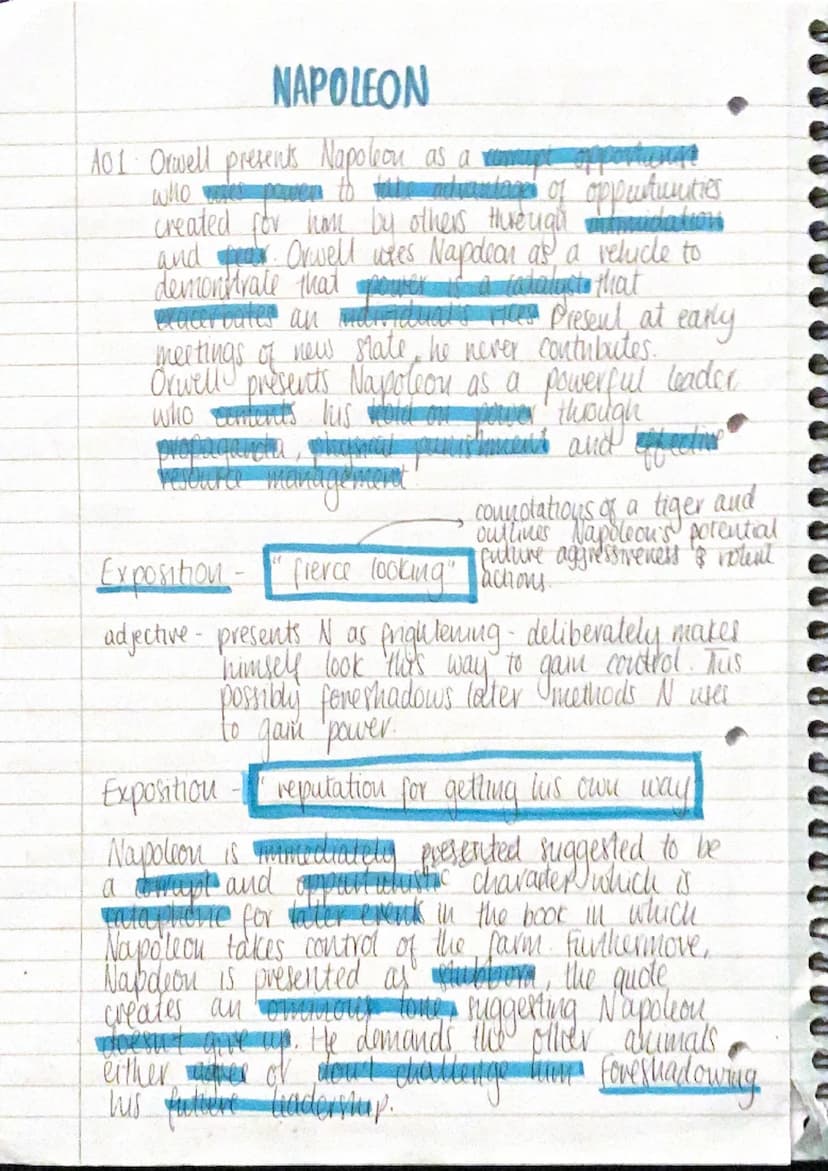 NAPOLEON
AO1 · Orwell presents Napoleon as a corrupt opportunist
who uses power to take advantage of opportunities
created for him by others through intimidation
and fear. Orwell uses Napoleon as a vehicle to
demonstrate that power is a catalyst that
exacerbates an individual's vices. Present at early
meetings of new state, he never contributes.
Orwell presents Napoleon as a powerful leader
who cements his hold on power through
propaganda, physical punishment and effective
resource management.
connotations of a tiger and
outlines Napoleon's potential
future aggressiveness & violent
actions.
Exposition - "fierce looking"
adjective - presents N as frightening - deliberately makes
himself look this way to gain control. This
possibly foreshadows later methods N uses
to gain power.
Exposition - "reputation for getting his own way
Napoleon is immediately presented suggested to be
a corrupt and opportunistic character which is
cataphoric for later events in the book in which
Napoleon takes control of the farm. Furthermore,
Napoleon is presented as stubborn, the quote
creates an ominous tone, suggesting Napoleon
doesn't give up. He demands the other animals
either agree or don't challenge him foreshadowing
his future leadership.